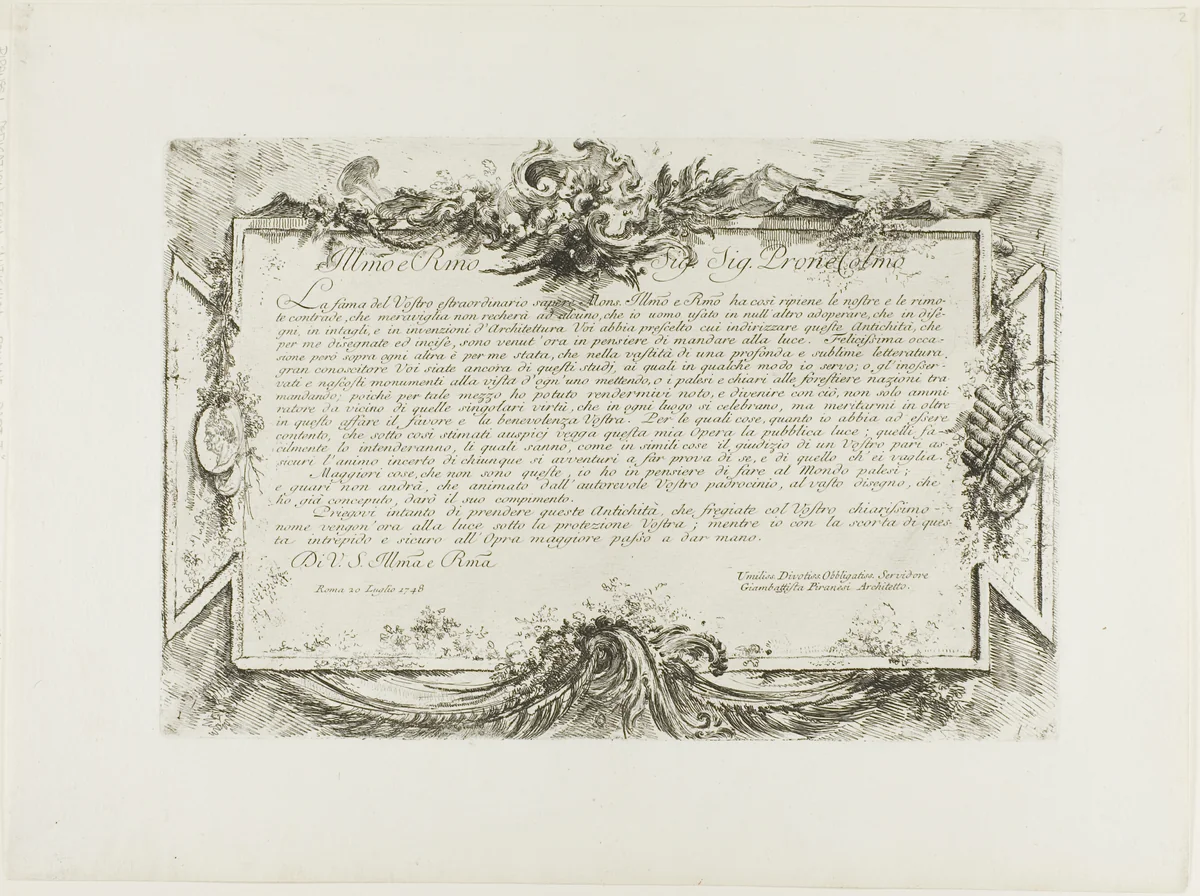 Illm̃o e Rm̃o Sig. Sig. Prone Colmo
La fama del Vostro estraordinario sapere Mons. Illm̃o e Rm̃o ha così ripiene le nostre e le rimo-
te contrade, che meraviglia non recherà ad alcuno, che io uomo usato in null'altro adoperare, che in dise-
gni, in intagli, e in invenzioni d'Architettura Voi abbia prescelto cui indirizzare queste Antichità, che
per me disegnate ed incise, sono venut'ora in pensiere di mandare alla luce. Felicissima occa-
sione però sopra ogni altra è per me stata, che nella vastità di una profonda e sublime letteratura
gran conoscitore Voi siate ancora di questi studj, ai quali in qualche modo io servo; o gl'inosser-
vati e nascosti monumenti alla vista d'ogn'uno mettendo, o i palesi e chiari alle forestiere nazioni tra
mandando; poichè per tale mezzo ho potuto rendermivi noto, e divenire con ciò, non solo ammi
ratore da vicino di quelle singolari virtù, che in ogni luogo si celebrano, ma meritarmi in oltre
in questo affare il favore e la benevolenza Vostra. Per le quali cose, quanto io abbia ad essere
contento, che sotto così stimati auspicj vegga questa mia Opera la pubblica luce; quelli fa-
cilmente lo intenderanno, li quali sanno, come in simili cose il giudizio di un Vostro pari as-
sicuri l'animo incerto di chiunque si avventuri a far prova di se, e di quello ch'ei vaglia.
Maggiori cose, che non sono queste, io ho in pensiere di fare al Mondo palesi;
e guari non andrà, che animato dall'autorevole Vostro padrocinio, al vasto disegno, che
ho già conceputo, darò il suo compimento.
Priegovi intanto di prendere queste Antichità, che, fregiate col Vostro chiarissimo
nome vengon'ora alla luce sotto la protezione Vostra; mentre io con la scorta di ques-
ta intrepido e sicuro all'Opra maggiore passo a dar mano.
Di V. S. Illm̃a e Rm̃a
Roma 20 Luglio 1748
Umiliss. Divotiss. Obbligatiss. Servidore
Giambattista Piranesi Architetto.
2